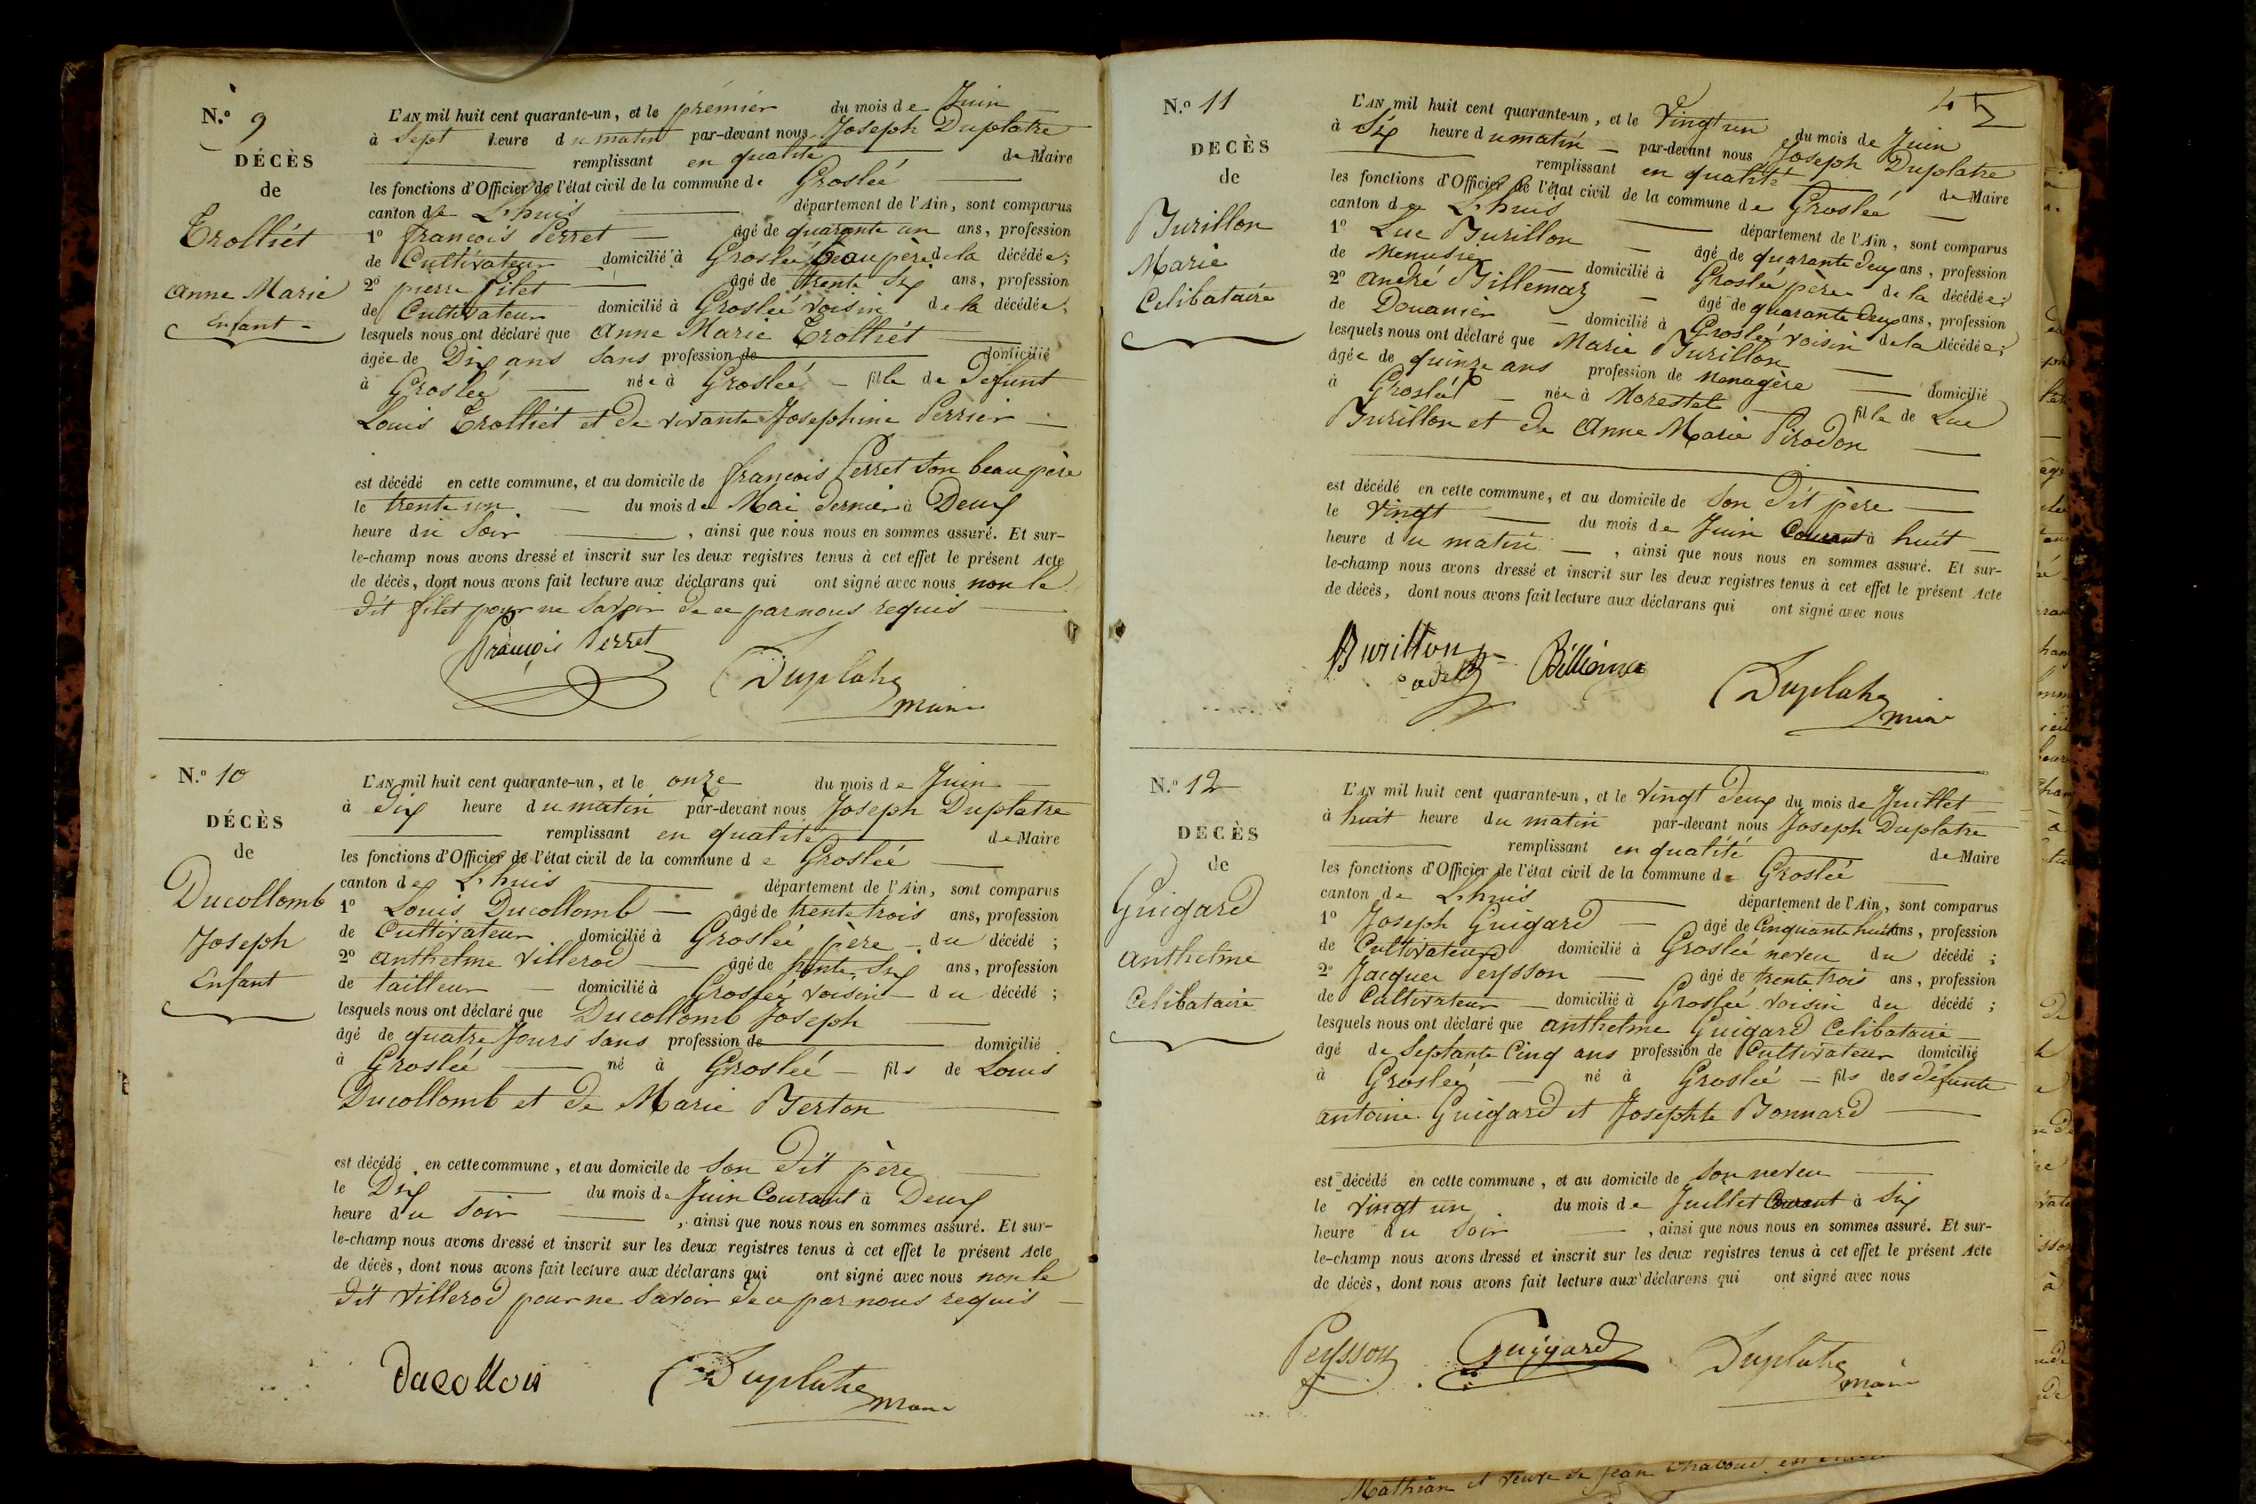 N.o 9
DÉCÈS
de
Trolliét
Anne Marie
Enfant
L'AN mil huit cent quarante-un, et le premier du mois de Juin
à Sept heure du matin par-devant nous Joseph Duplatre
remplissant en qualité de Maire
les fonctions d'Officier de l'état civil de la commune de Groslée
canton de L'huis département de l'Ain, sont comparus
1o françois Perret âgé de quarante un ans, profession
de Cultivateur domicilié à Groslée beaupère de la décédée;
2o pierre filet âgé de trente Six ans, profession
de Cultivateur domicilié à Groslée voisin de la décédée;
lesquels nous ont déclaré que Anne Marie Trolliét
âgée de Dix ans sans profession de domicilié
à Groslée née à Groslée fille de Defunt
Louis Trolliét et de vivante Josephine Perrier
est décédé en cette commune, et au domicile de françois Perret son beaupère
le trente un du mois de Mai dernier à Deux
heure du Soir, ainsi que nous nous en sommes assuré. Et sur-
le-champ nous avons dressé et inscrit sur les deux registres tenus à cet effet le présent Acte
de décès, dont nous avons fait lecture aux déclarans qui ont signé avec nous non le
dit filet pour ne Savoir de ce par nous requis
François Perret
Duplatre
maire
N.o 10
DÉCÈS
de
Ducollomb
Joseph
Enfant
L'AN mil huit cent quarante-un, et le onze du mois de Juin
à Dix heure du matin par-devant nous Joseph Duplatre
remplissant en qualité de Maire
les fonctions d'Officier de l'état civil de la commune de Groslée
canton de L'huis département de l'Ain, sont comparus
1o Louis Ducollomb âgé de trente trois ans, profession
de Cultivateur domicilié à Groslée père du décédé;
2o anthelme Villerod âgé de trente Six ans, profession
de tailleur domicilié à Groslée voisin du décédé;
lesquels nous ont déclaré que Ducollomb Joseph
âgé de quatre Jours sans profession de domicilié
à Groslée né à Groslée fils de Louis
Ducollomb et de Marie Berton
est décédé en cette commune, et au domicile de son dit père
le Dix du mois de Juin Courant à Deux
heure du Soir, ainsi que nous nous en sommes assuré. Et sur-
le-champ nous avons dressé et inscrit sur les deux registres tenus à cet effet le présent Acte
de décès, dont nous avons fait lecture aux déclarans qui ont signé avec nous non le
dit Villerod pour ne Savoir de ce par nous requis
Duplatre
maire
N.o 11
DÉCÈS
de
Burillon
Marie
Celibataire
L'AN mil huit cent quarante-un, et le Vingt un du mois de Juin
à Six heure du matin par-devant nous Joseph Duplatre
remplissant en qualité de Maire
les fonctions d'Officier de l'état civil de la commune de Groslée
canton de L'huis département de l'Ain, sont comparus
1o Luc Burillon âgé de quarante deux ans, profession
de Menusier domicilié à Groslée père de la décédée;
2o André Billemaz âgé de quarante deux ans, profession
de Douanier domicilié à Groslée voisin de la décédée;
lesquels nous ont déclaré que Marie Burillon
âgée de quinze ans profession de Menagère domicilié
à Groslée née à Morestel fille de Luc
Burillon et de Anne Marie Pirodon
est décédé en cette commune, et au domicile de son dit père
le Vingt du mois de Juin Courant à huit
heure du matin, ainsi que nous nous en sommes assuré. Et sur-
le-champ nous avons dressé et inscrit sur les deux registres tenus à cet effet le présent Acte
de décès, dont nous avons fait lecture aux déclarans qui ont signé avec nous
Burillon
Duplatre
maire
N.o 12
DÉCÈS
de
Guigard
Anthelme
Celibataire
L'AN mil huit cent quarante-un, et le Vingt deux du mois de Juillet
à huit heure du matin par-devant nous Joseph Duplatre
remplissant en qualité de Maire
les fonctions d'Officier de l'état civil de la commune de Groslée
canton de L'huis département de l'Ain, sont comparus
1o Joseph Guigard âgé de Cinquante huit ans, profession
de Cultivateur domicilié à Groslée neveu du décédé;
2o Jacques Peysson âgé de trente trois ans, profession
de Cultivateur domicilié à Groslée voisin du décédé;
lesquels nous ont déclaré que Anthelme Guigard Celibataire
âgé de Septante Cinq ans profession de Cultivateur domicilié
à Groslée né à Groslée fils des défunts
antoine Guigard et Josephte Bonnard
est décédé en cette commune, et au domicile de son neveu
le Vingt un du mois de Juillet Courant à Six
heure du Soir, ainsi que nous nous en sommes assuré. Et sur-
le-champ nous avons dressé et inscrit sur les deux registres tenus à cet effet le présent Acte
de décès, dont nous avons fait lecture aux déclarans qui ont signé avec nous
Peysson
Guigard
Duplatre
maire